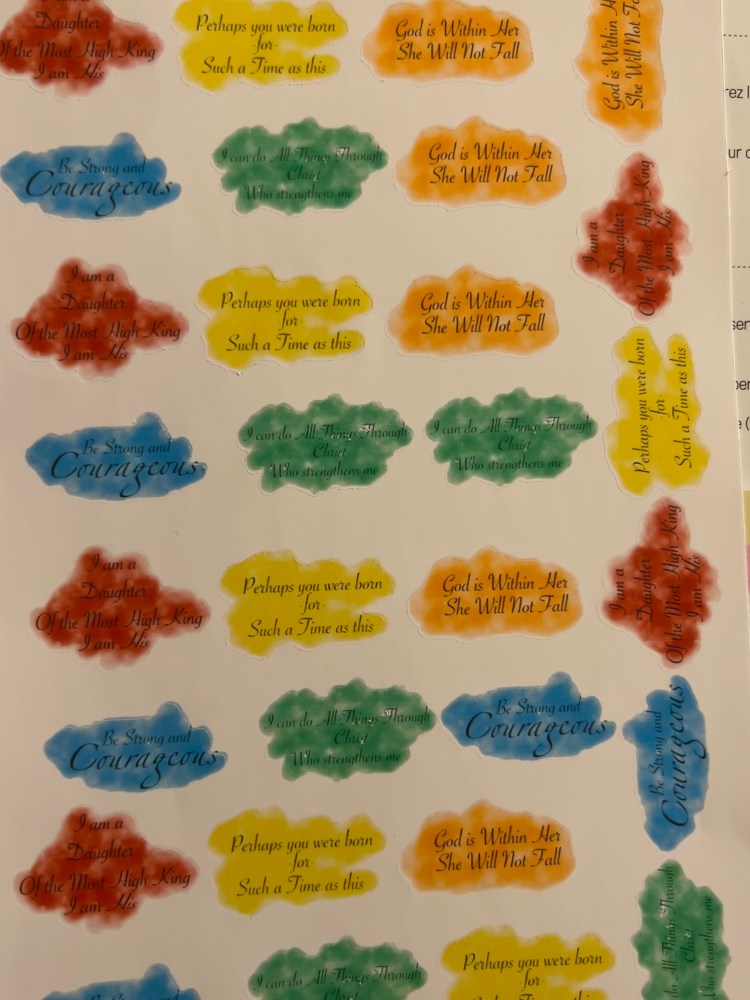 Daughter
Of the Most High King
I am His
Perhaps you were born
for
Such a Time as this
God is Within Her
She Will Not Fall
God is Within H
She Will Not Fa
Be Strong and
Courageous
I can do All Things Through
Christ
Who strengthens me
God is Within Her
She Will Not Fall
I am a
Daughter
Of the Most High King
I am His
I am a
Daughter
Of the Most High King
I am His
Perhaps you were born
for
Such a Time as this
God is Within Her
She Will Not Fall
Perhaps you were born
for
Such a Time as this
Be Strong and
Courageous
I can do All Things Through
Christ
Who strengthens me
I can do All Things Through
Christ
Who strengthens me
I am a
Daughter
Of the Most High King
I am His
Perhaps you were born
for
Such a Time as this
God is Within Her
She Will Not Fall
I am a
Daughter
Of the Most High King
I am His
Be Strong and
Courageous
I can do All Things Through
Christ
Who strengthens me
Be Strong and
Courageous
Be Strong and
Courageous
I am a
Daughter
Of the Most High King
I am His
Perhaps you were born
for
Such a Time as this
God is Within Her
She Will Not Fall
All Things Through
Christ
strengthens me
Be Strong and
I can do All Things Through
Christ
Perhaps you were born
for
Such a Time as this